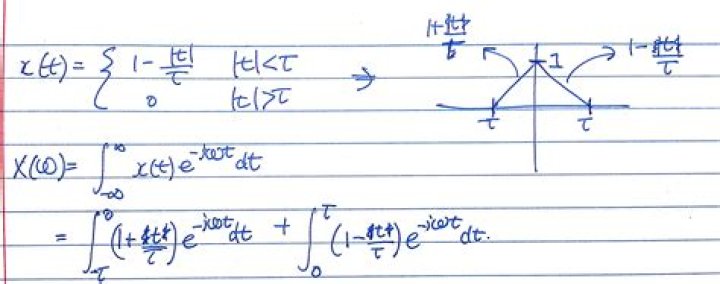 1+t/τ
x(t) = { 1 - |t|/τ   |t|<τ   →   1   1-t/τ
0   |t|>τ   -τ   τ
X(ω) = ∫_{-∞}^{∞} x(t) e^{-jωt} dt
= ∫_{-τ}^{0} (1+t/τ) e^{-jωt} dt + ∫_{0}^{τ} (1-t/τ) e^{-jωt} dt.